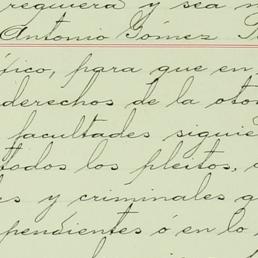 requiera y sea n
Antonio Gómez
ptico, para que en
derechos de la oto
facultades siguie
todos los pleitos,
es y criminales q
pendientes ó en lo